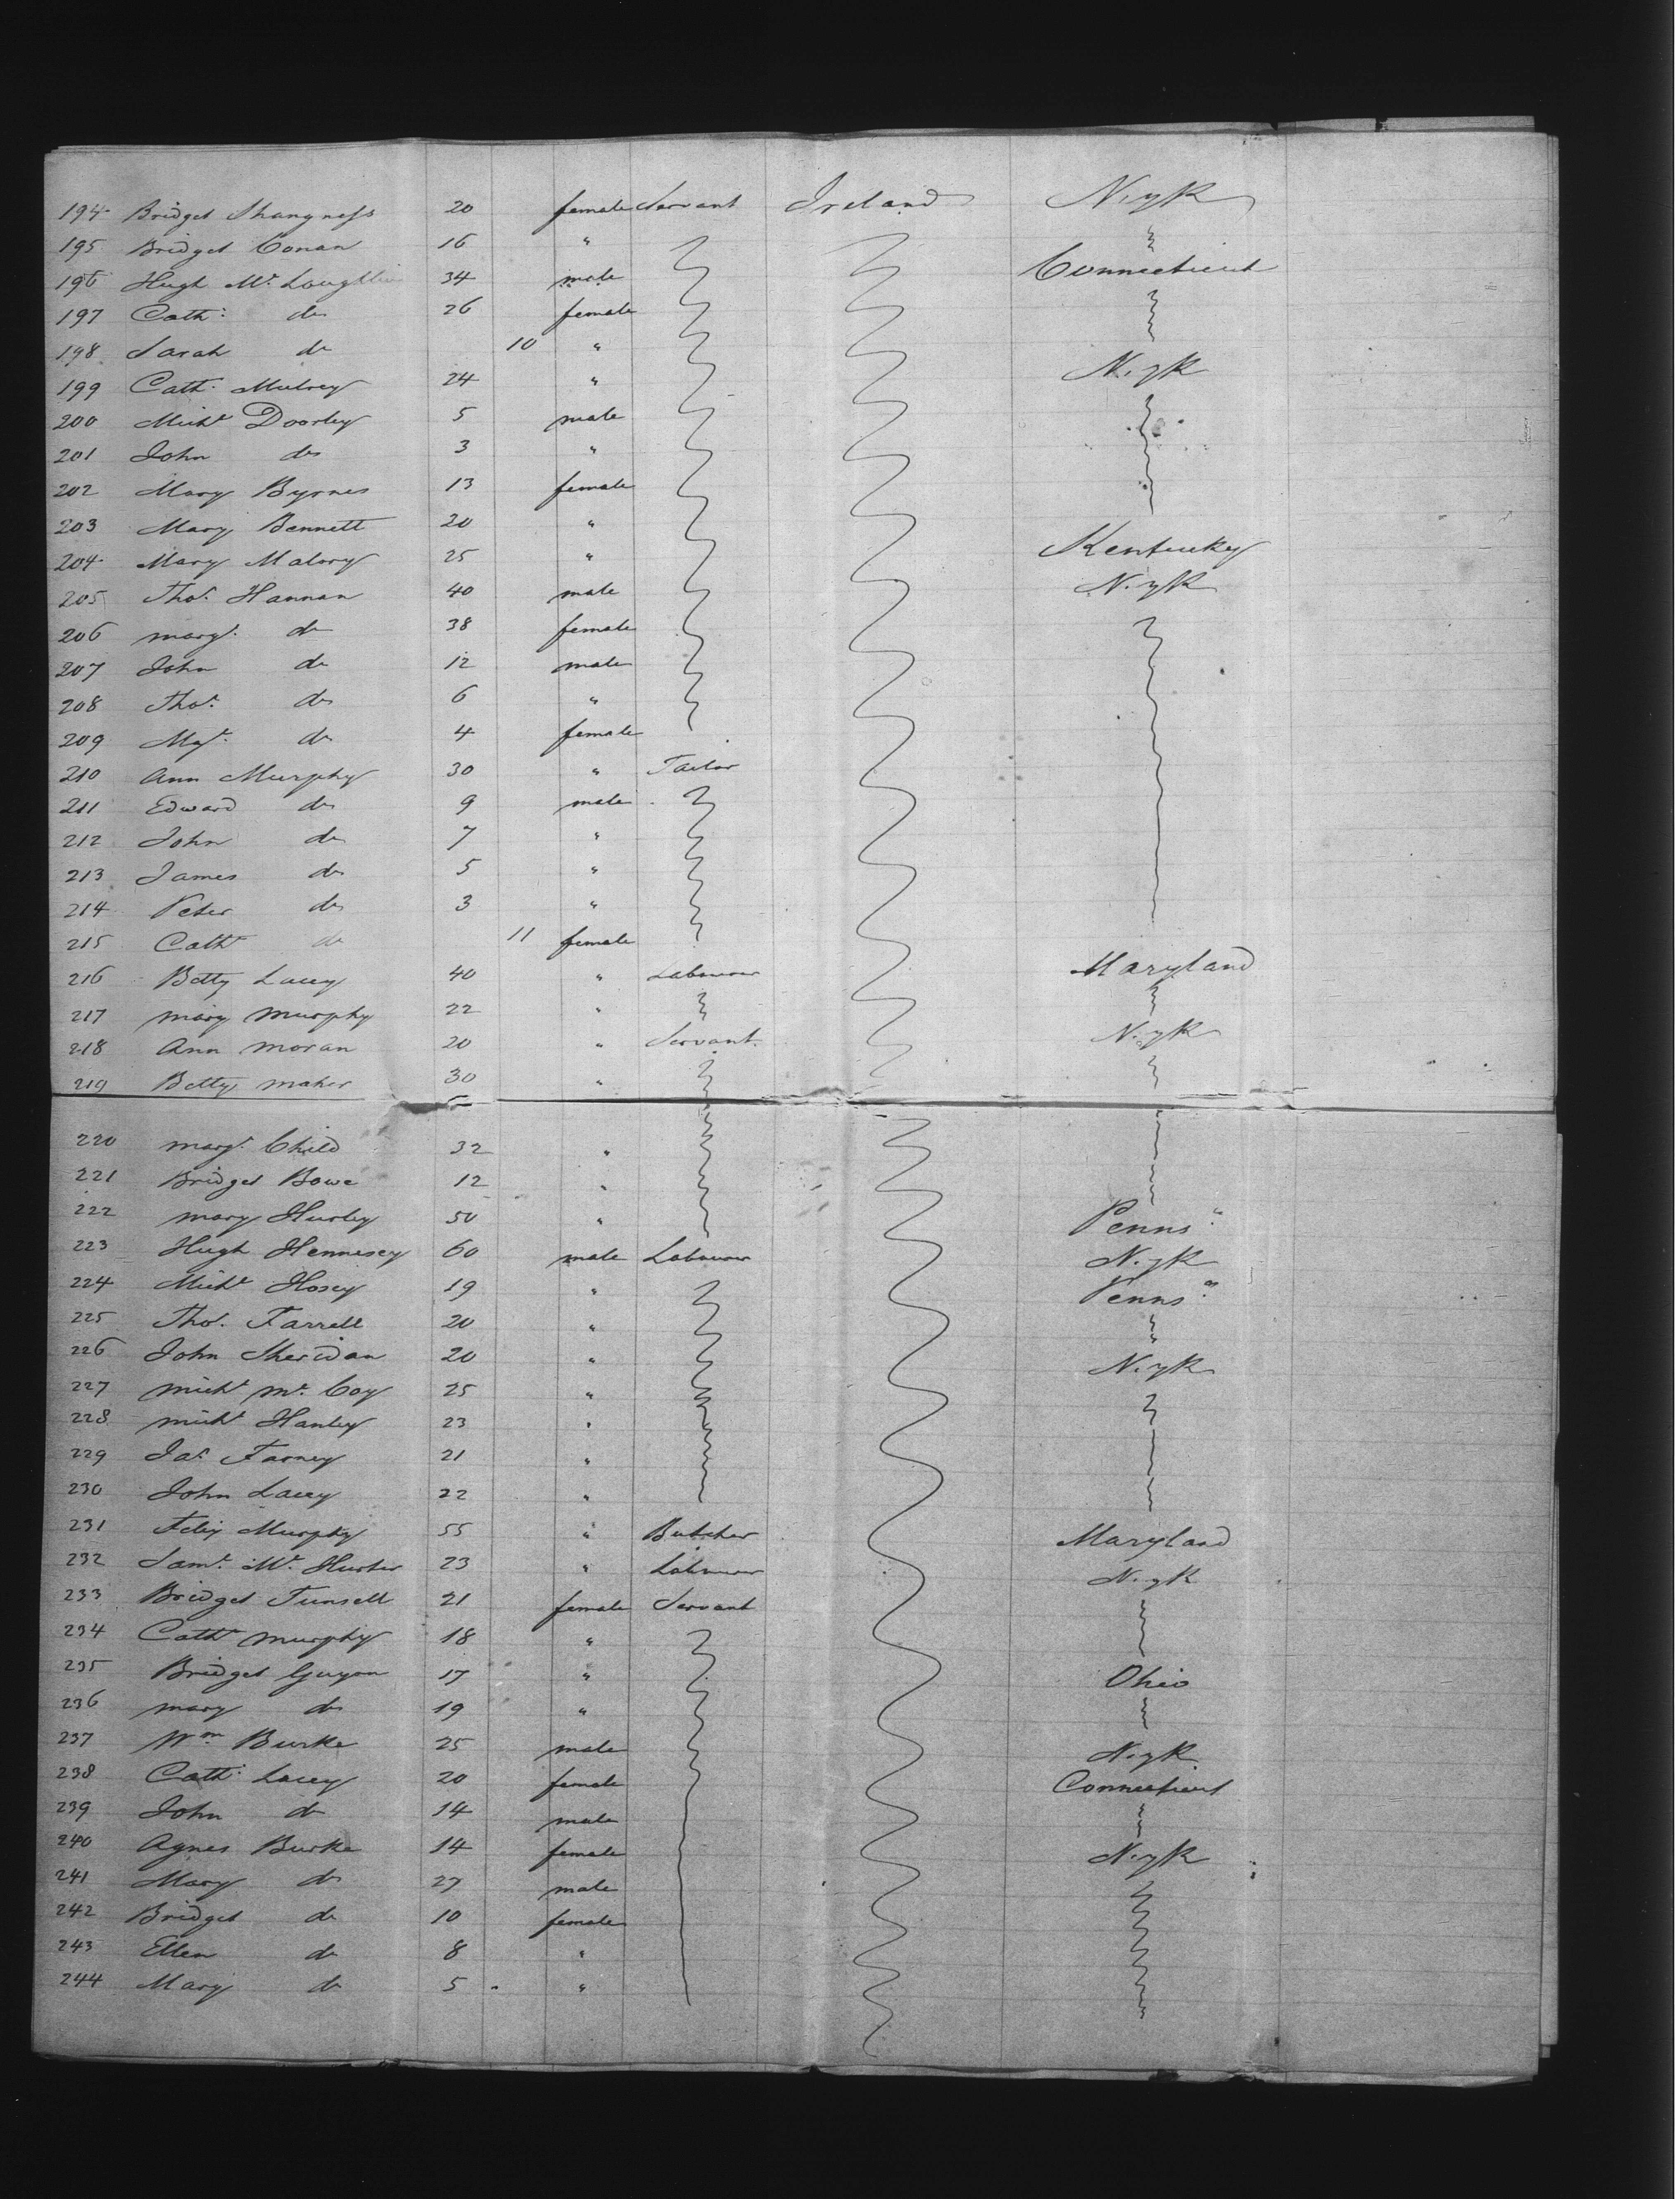 194 Bridget Shaugness 20 female Servant Ireland N. yk
195 Bridget Conan 16 "
196 Hugh Mc Loughlin 34 male Connecticut
197 Cath: do 26 female
198 Sarah do 10 "
199 Cath. Mulvey 24 " N. yk
200 Michl Doorley 5 male
201 John do 3 "
202 Mary Byrnes 13 female
203 Mary Bennett 20 "
204 Mary Malovy 25 " Kentucky
205 Thos. Hannan 40 male N. yk
206 margt. do 38 female
207 John do 12 male
208 Thos. do 6 "
209 Mgt. do 4 female
210 Ann Murphy 30 " Tailor
211 Edward do 9 male
212 John do 7 "
213 James do 5 "
214 Peter do 3 "
215 Cathe do 11 female
216 Betty Lacey 40 " Labourer Maryland
217 mary murphy 22 "
218 Ann moran 20 " Servant N. yk
219 Betty maher 30 "
220 margt. Child 32 "
221 Bridget Bowe 12 "
222 mary Hurley 50 " Penns a
223 Hugh Hennesey 60 male Labourer N. yk
224 Michl Hosey 19 " Penns a
225 Thos. Farrell 20 "
226 John Sheridan 20 " N. yk
227 michl mc Coy 25 "
228 michl Hanley 23 "
229 Jas. Farney 21 "
230 John Lacey 22 "
231 Felix Murphy 55 " Butcher Maryland
232 Saml. Mc Hurter 23 " Labourer N. yk
233 Bridget Tunsell 21 female Servant
234 Cathe murphy 18 "
235 Bridget Guyon 17 " Ohio
236 mary do 19 "
237 Wm Burke 25 male N. yk
238 Cath: Lacey 20 female Connecticut
239 John do 14 male
240 Agnes Burke 14 female N. yk
241 Mary do 27 male
242 Bridget do 10 female
243 Ellen do 8 "
244 Mary do 5 "